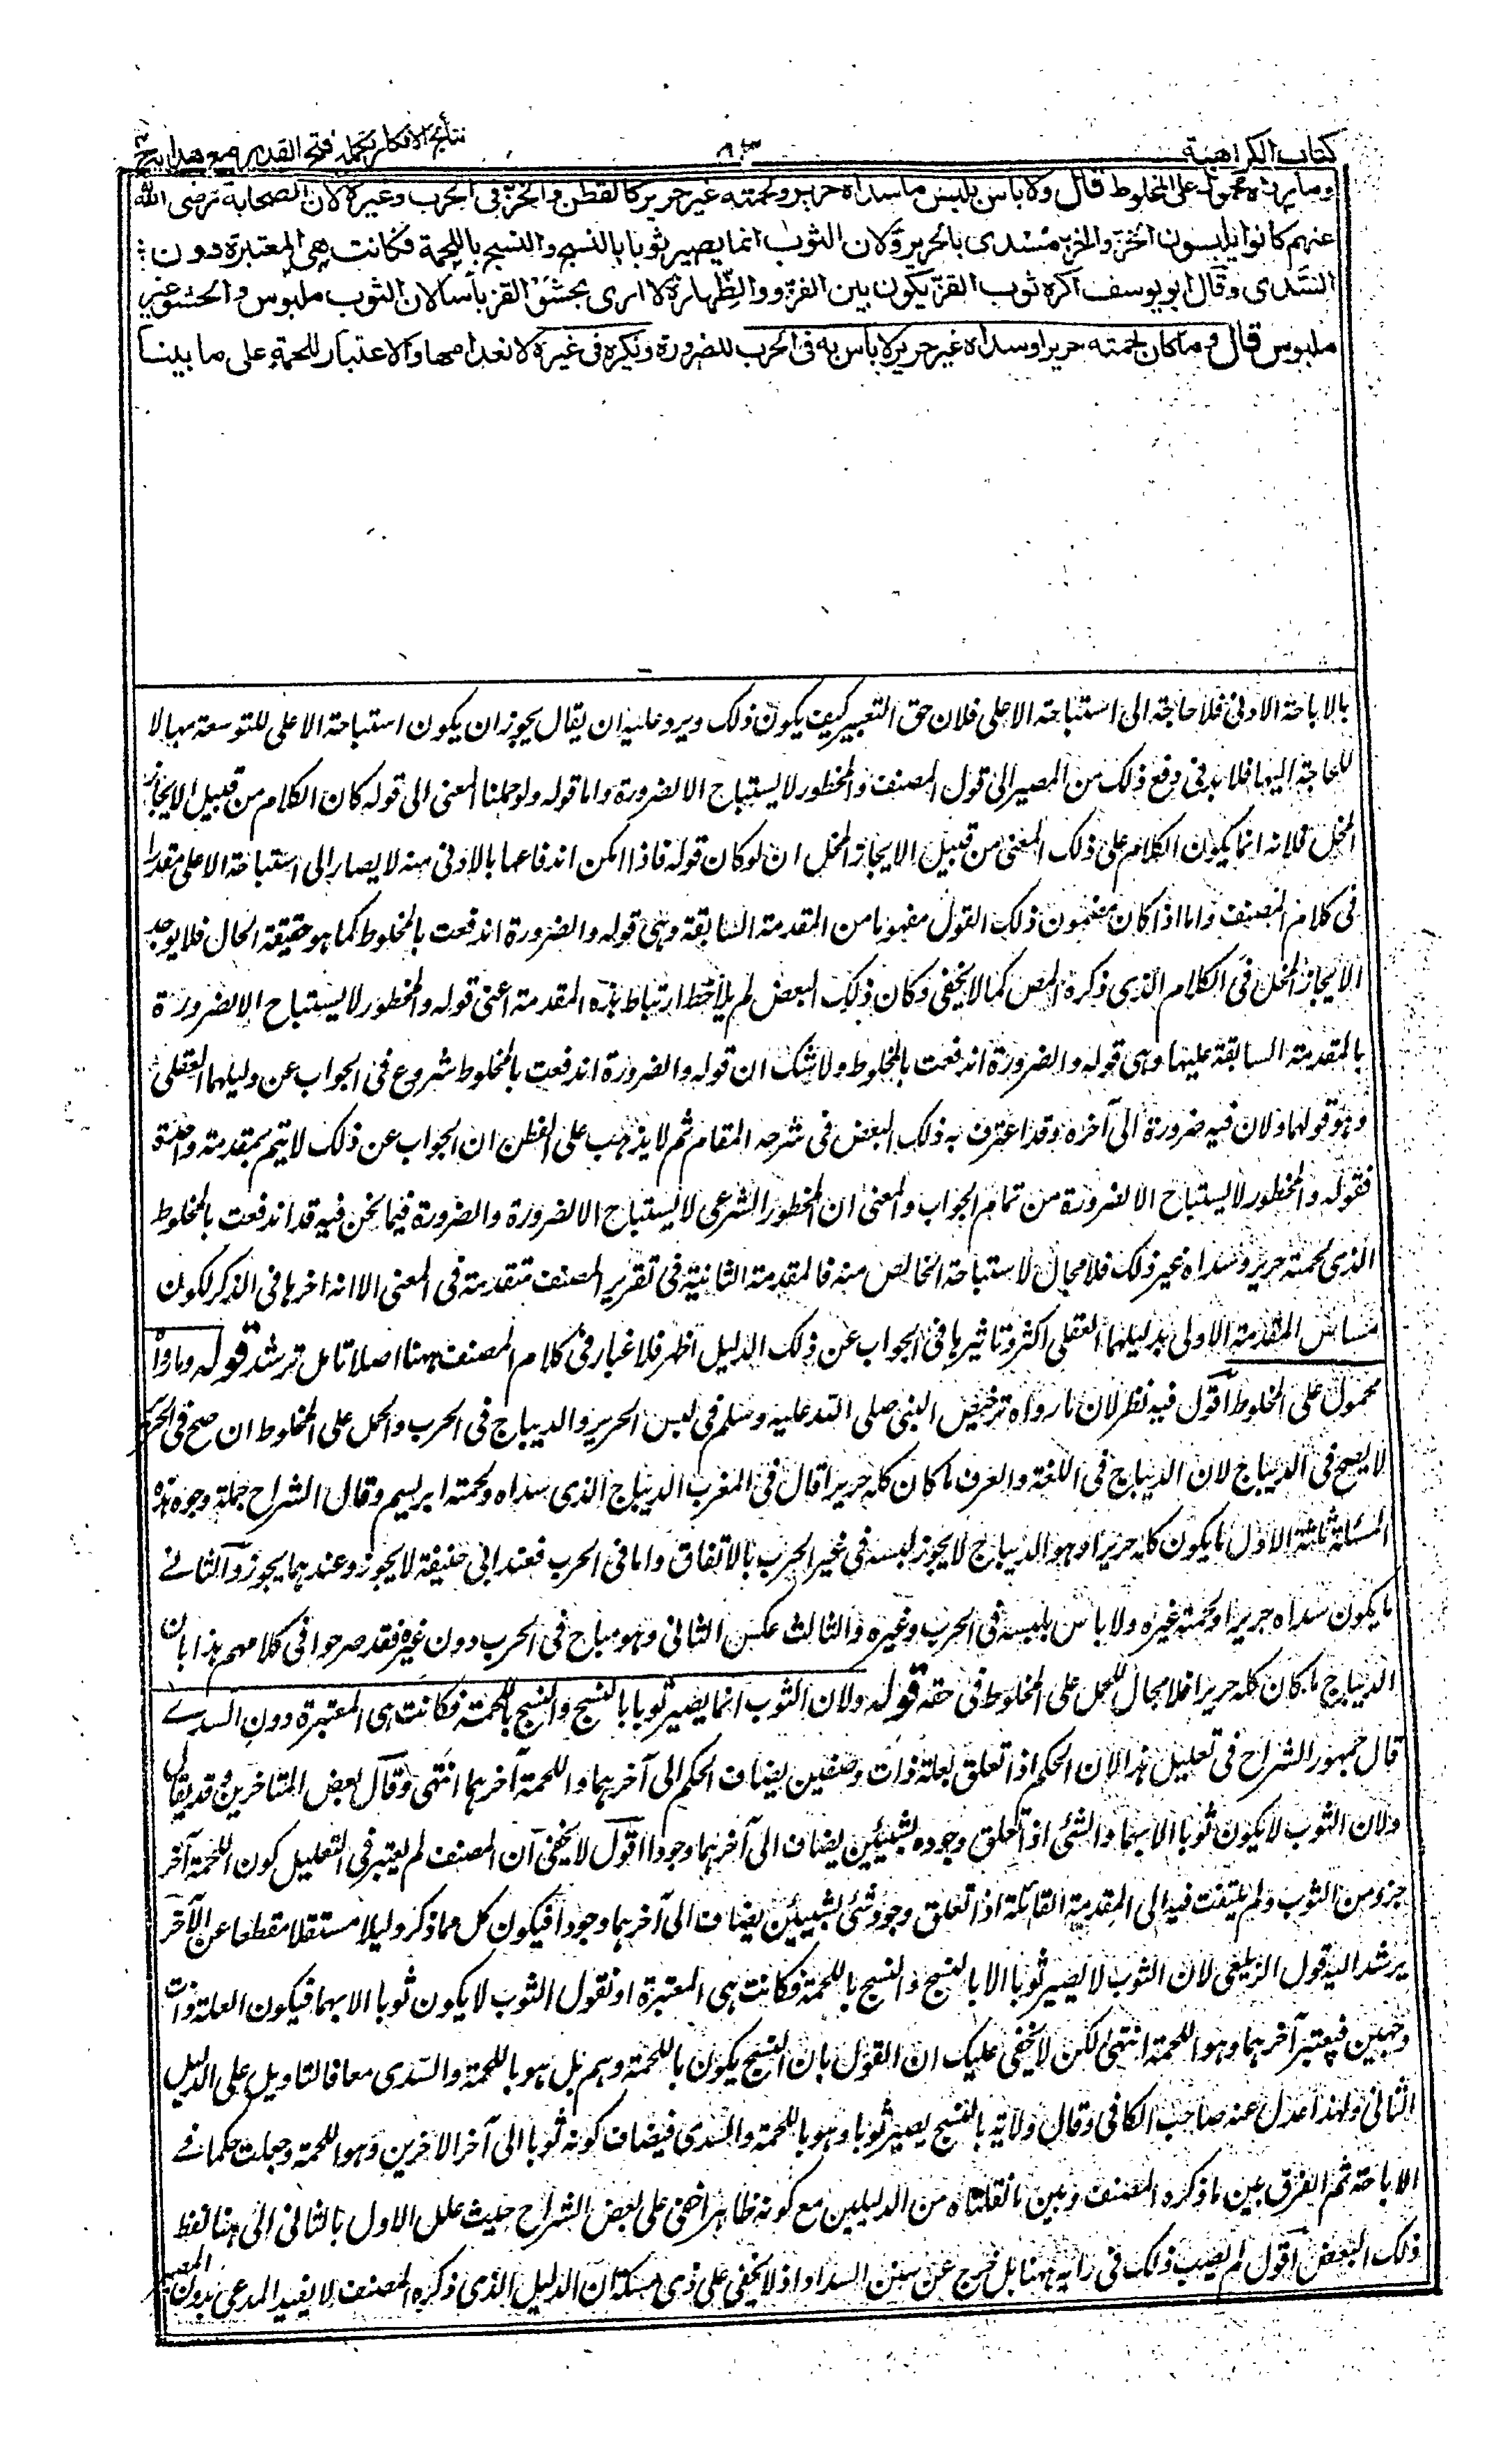 كتاب الكراهية
نتائج الافكار تكملة فتح القدير مع هداية ج
وما رواه محمول على المخلوط قال ولا باس بلبس ما سداه حرير ولحمته غير حرير كالقطن والخز فى الحرب وغيره لان الصحابة رضى الله
عنهم كانوا يلبسون الخز والخز مسدى بالحرير ولان الثوب انما يصير ثوبا بالنسج والنسج باللحمة فكانت هى المعتبرة دون
السدى وقال ابو يوسف اكره ثوب القز يكون بين الفرو والظهارة ولا ارى بحشو القز بأسا لان الثوب ملبوس والحشو غير
ملبوس قال وما كان لحمته حريرا وسداه غير حرير لا باس به فى الحرب للضرورة ويكره فى غيره لانعدامها والاعتبار للحمة على ما بينا
بالاباحة الادنى فلا حاجة الى استباحة الاعلى فلان حق التعبير كيف يكون ذلك ويرد عليه ان يقال يجوز ان يكون استباحة الاعلى للتوسعة بها لا
للحاجة اليها فلا بد فى دفع ذلك من المصير الى قول المصنف والمحظور لا يستباح الا لضرورة واما قوله ولو حملنا المعنى الى قوله كان الكلام من قبيل الايجاز
المخل فلانه انما يكون الكلام على ذلك المعنى من قبيل الايجاز المخل ان لو كان قوله فاذا امكن اندفاعها بالادنى منه لا يصار الى استباحة الاعلى مقدرا
فى كلام المصنف واما اذا كان مضمون ذلك القول مفهوما من المقدمة السابقة وهى قوله والضرورة اندفعت بالمخلوط كما هو حقيقة الحال فلا يوجد
الايجاز المخل فى الكلام الذى ذكره المص كما لا يخفى وكان ذلك البعض لم يلاحظ ارتباط هذه المقدمة اعنى قوله والمحظور لا يستباح الا لضرورة
بالمقدمة السابقة عليها وهى قوله والضرورة اندفعت بالمخلوط ولا شك ان قوله والضرورة اندفعت بالمخلوط شروع فى الجواب عن دليلهما العقلى
وهو قولهما ولان فيه ضرورة الى آخره وقد اعترف به ذلك البعض فى شرحه المقام ثم لا يذهب على الفطن ان الجواب عن ذلك لا يتم بمقدمة واحدة
فقوله والمحظور لا يستباح الا لضرورة من تمام الجواب والمعنى ان المحظور الشرعى لا يستباح الا لضرورة والضرورة فيما نحن فيه قد اندفعت بالمخلوط
الذى لحمته حرير وسداه غير ذلك فلا مجال لاستباحة الخالص منه فالمقدمة الثانية فى تقرير المصنف متقدمة فى المعنى الا انه اخرها فى الذكر لكون
مساس المقدمة الاولى بدليلهما العقلى اكثر وتاثيرها فى الجواب عن ذلك الدليل اظهر فلا غبار فى كلام المصنف ههنا اصلا تامل ترشد قوله وما رواه
محمول على المخلوط اقول فيه نظر لان ما رواه ترخيص النبى صلى الله عليه وسلم فى لبس الحرير والديباج فى الحرب والحمل على المخلوط ان صح فى الحرير
لا يصح فى الديباج لان الديباج فى اللغة والعرف ما كان كله حريرا قال فى المغرب الديباج الذى سداه ولحمته ابريسم وقال الشراح جملة وجوه هذه
المسئلة ثلثة الاول ما يكون كله حريرا وهو الديباج لا يجوز لبسه فى غير الحرب بالاتفاق واما فى الحرب فعند ابى حنيفة لا يجوز وعندهما يجوز والثانى
ما يكون سداه حريرا ولحمته غيره ولا باس بلبسه فى الحرب وغيره والثالث عكس الثانى وهو مباح فى الحرب دون غيره فقد صرحوا فى كلامهم هذا بان
الديباج ما كان كله حريرا فلا مجال للحمل على المخلوط فى حقه قوله ولان الثوب انما يصير ثوبا بالنسج والنسج باللحمة فكانت هى المعتبرة دون السدى
قال جمهور الشراح فى تعليل هذا لان الحكم اذا تعلق بعلة ذات وصفين يضاف الحكم الى آخرهما واللحمة آخرهما انتهى وقال بعض المتاخرين قد يقال
ولان الثوب لا يكون ثوبا الا بهما والشئ اذا تعلق وجوده بشيئين يضاف الى آخرهما وجودا اقول لا يخفى ان المصنف لم يعتبر فى التعليل كون اللحمة آخر
جزء من الثوب ولم يلتفت فيه الى المقدمة القائلة اذا تعلق وجود شئ بشيئين يضاف الى آخرهما وجودا فيكون كل مما ذكر دليلا مستقلا مقطعا عن الآخر
يرشد اليه قول الزيلعى لان الثوب لا يصير ثوبا الا بالنسج والنسج باللحمة فكانت هى المعتبرة او نقول الثوب لا يكون ثوبا الا بهما فيكون العلة ذات
وجهين فيعتبر آخرهما وهو اللحمة انتهى لكن لا يخفى عليك ان القول بان النسج يكون باللحمة وهم بل هو باللحمة والسدى معا فالتاويل على الدليل
الثانى ولهذا عدل عنه صاحب الكافى وقال ولانه بالنسج يصير ثوبا وهو باللحمة والسدى فيضاف كونه ثوبا الى آخر الاخرين وهو اللحمة وجعلت حكما فى
الاباحة ثم الفرق بين ما ذكره المصنف وبين ما نقلناه من الدليلين مع كونه ظاهرا خفى على بعض الشراح حيث علل الاول بالثانى الى هنا لفظ
ذلك البعض اقول لم يصب ذلك فى رايه ههنا بل خرج عن سنن السداد اذ لا يخفى على ذى مسكة ان الدليل الذى ذكره المصنف لا يفيد المدعى بدون